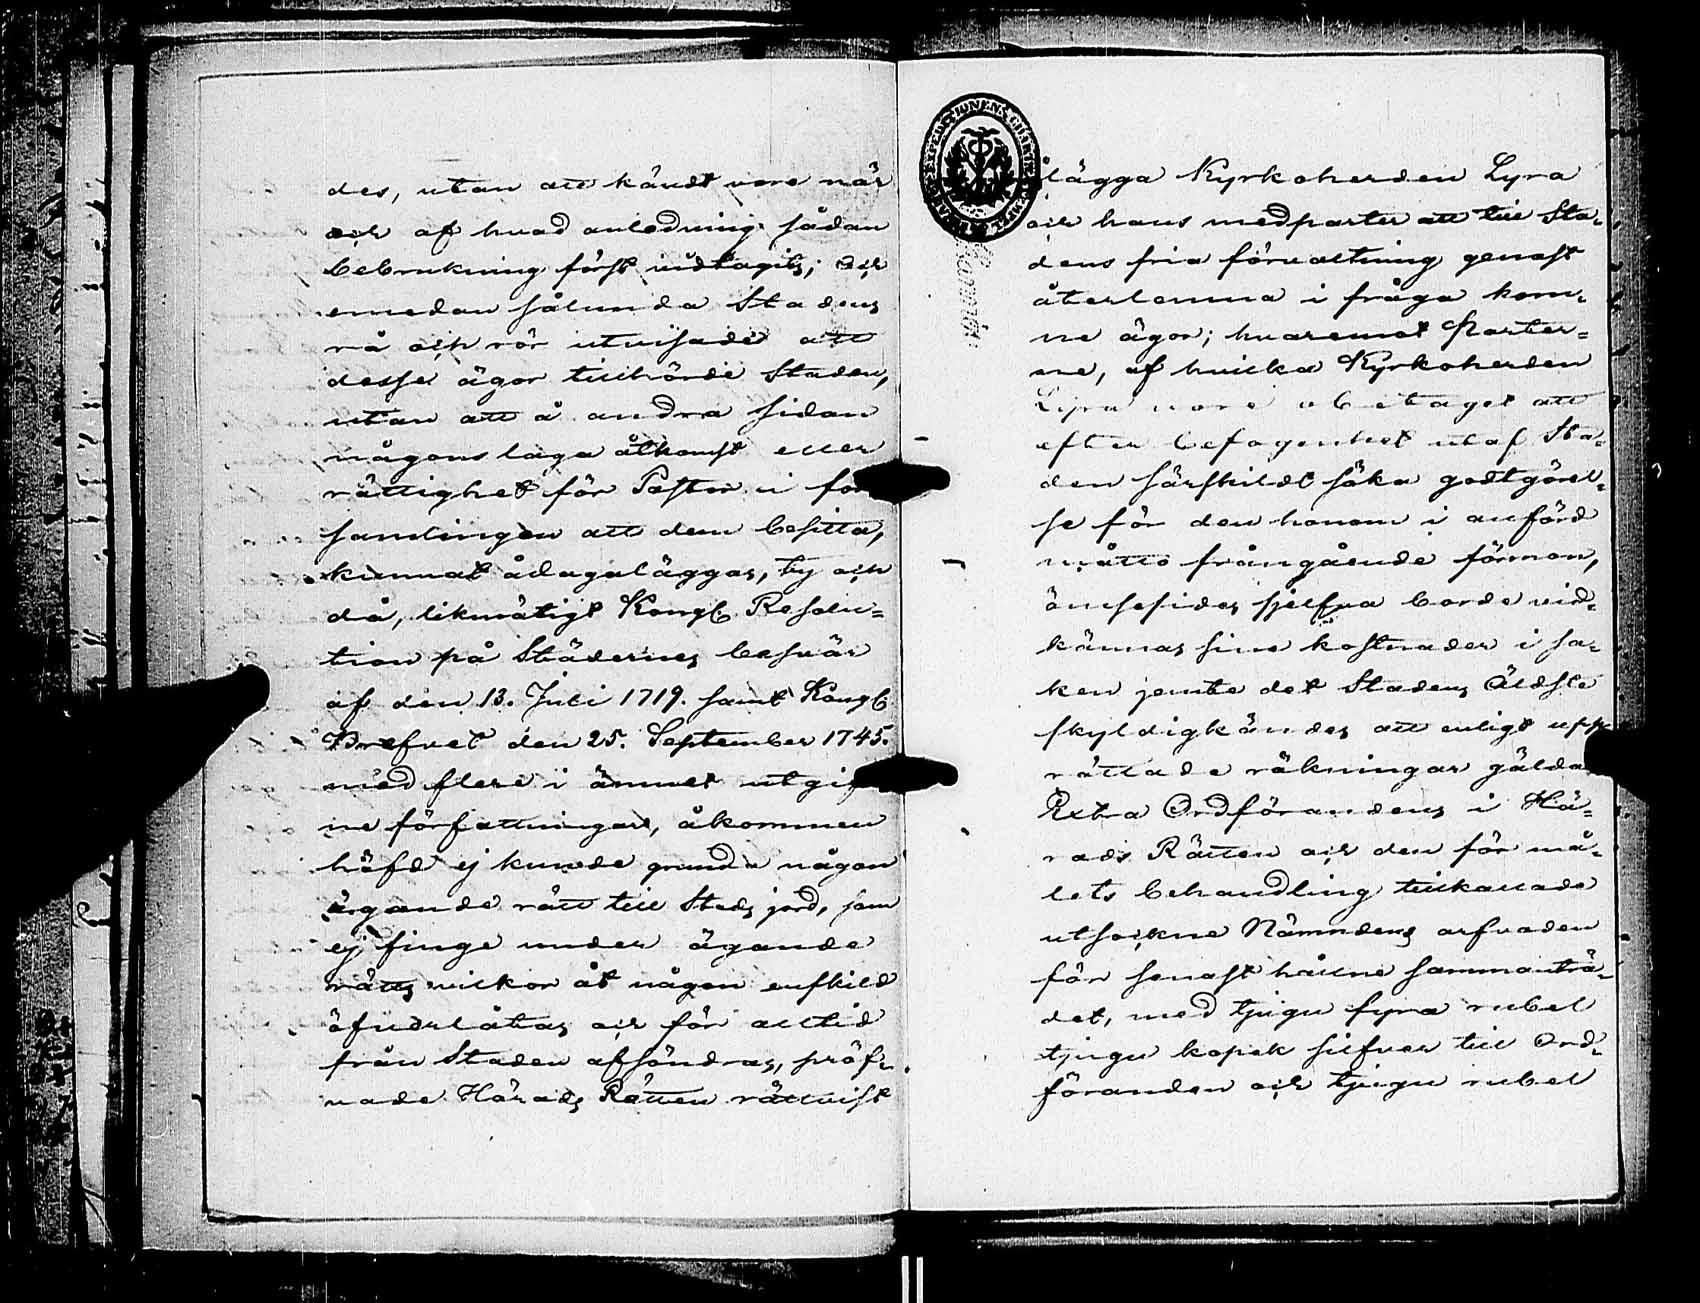 des, utan att kändt vore när
och af hvad anledning sådan
bebrukning först vidtagits; Och
emedan sålunda Stadens
rå och rör utvisade att
desse ägor tillhörde Staden,
utan att å andra sidan
någons laga åtkomst eller
rättighet för Pastor i för
samlingen att dem besitta,
kunnat ådagaläggas, ty och
då, likmätigt Kongl. Resolu-
tion på Städernes besvär
af den 13. Juli 1719. samt Kongl.
Brefvet den 25. September 1745.
med flere i ämnet utgif
ne författningar, åkommen
häfd ej kunde grunda någon
ägande rätt till Stads jord, som
ej finge under ägande
rätts vilkor åt någon enskild
öfverlåtas och för alltid
från Staden afsöndras, pröf-
vade Härads Rätten rättvist
ålägga Kyrkoherden Lyra
och hans medparter att till Sta-
dens fria förvaltning genast
återlemna i fråga kom-
ne ägor; hvaremot Parter-
ne, af hvilka Kyrkoherden
Lyra vore obetaget att
efter befogenhet utaf Sta-
den särskildt söka godtgörel-
se för den honom i anförd
måtto frångående förmon,
ömsesides sjelfva borde vid-
kännas sine kostnader i sa-
ken jemte det Stadens Äldste
skyldigkändes att enligt upp
rättade räkningar gälda
Extra Ordförandens i Hä-
rads Rätten och den för må-
lets behandling tillkallade
utsockne Nämndens arfvoden
för senast hållne sammanträ-
det, med tjugu fyra rubel
tjugu kopek silfver till Ord-
föranden och tjugu rubel